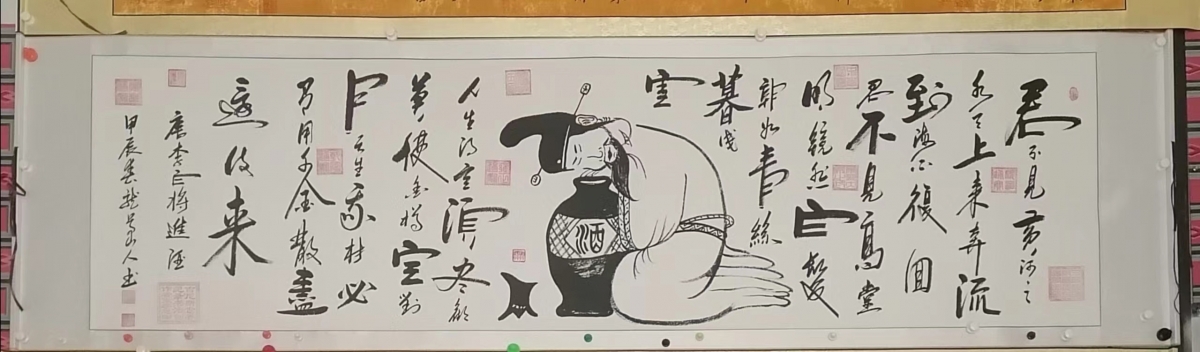 君不見黄河之
水天上来奔流
到海不復回
君不見高堂
明镜悲白髮
朝如青絲
暮成
雪
酒
人生得意須尽歡
莫使金樽空對
月天生我材必
有用千金散盡
還復来
唐李白將進酒
甲辰春楚山人書